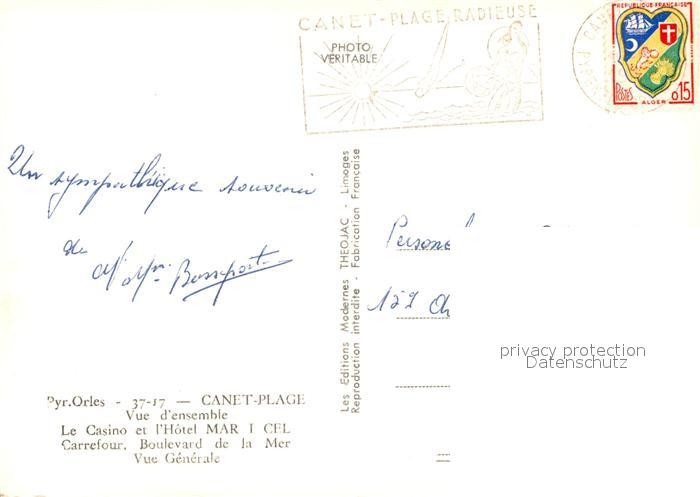 CANET-PLAGE RADIEUSE
PHOTO
VERITABLE
REPUBLIQUE FRANCAISE
POSTES
0,15
ALGER
Un sympathique souvenir
de
Les Editions Modernes THEOJAC - Limoges
Reproduction interdite - Fabrication Française
152
privacy protection
Datenschutz
Pyr.Orles - 37-17 — CANET-PLAGE
Vue d'ensemble
Le Casino et l'Hôtel MAR I CEL
Carrefour, Boulevard de la Mer
Vue Générale